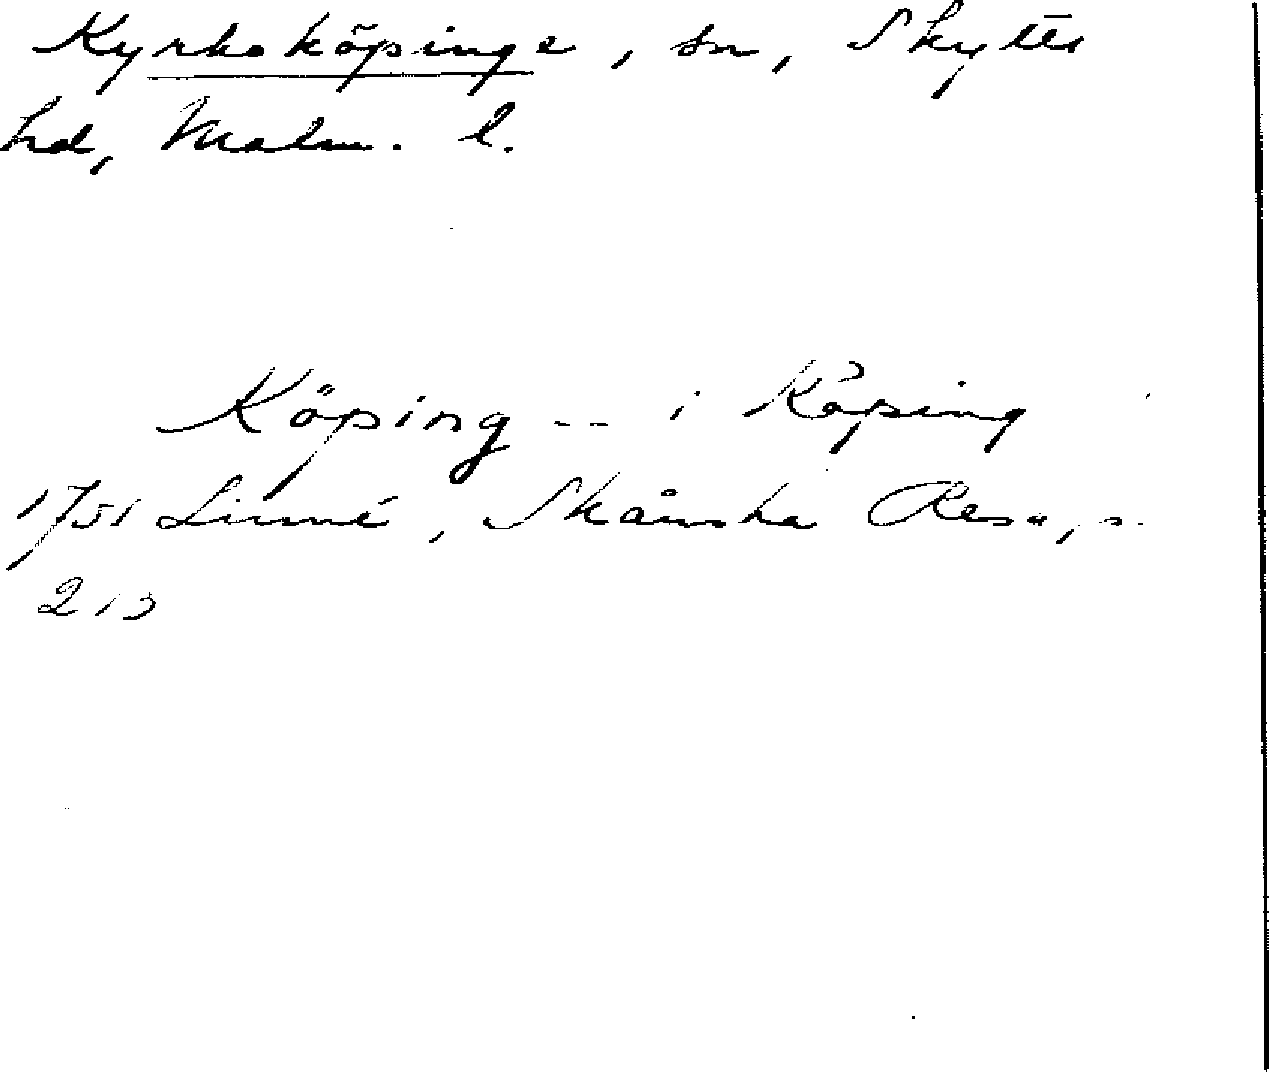 Kyrkoköpinge, sn, Skytts
hd, Malm. l.
Köping -- i Köping
1751 Linné, Skånska Resa, s.
213